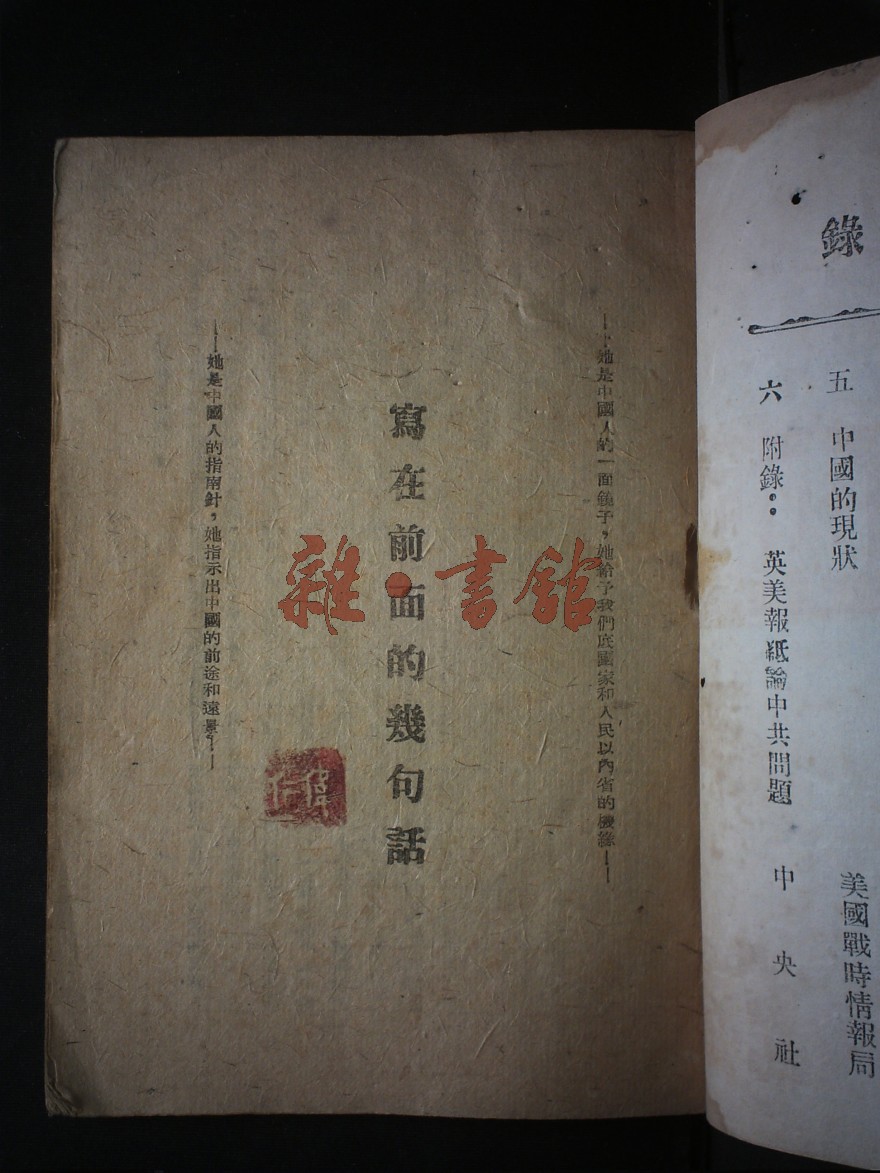 錄
五 中國的現狀 美國戰時情報局
六 附錄：英美報紙論中共問題 中央社
——她是中國人的一面鏡子，她給予我們底國家和人民以內省的機緣——
寫在前面的幾句話
——她是中國人的指南針，她指示出中國的前途和遠景！——
雜·書館